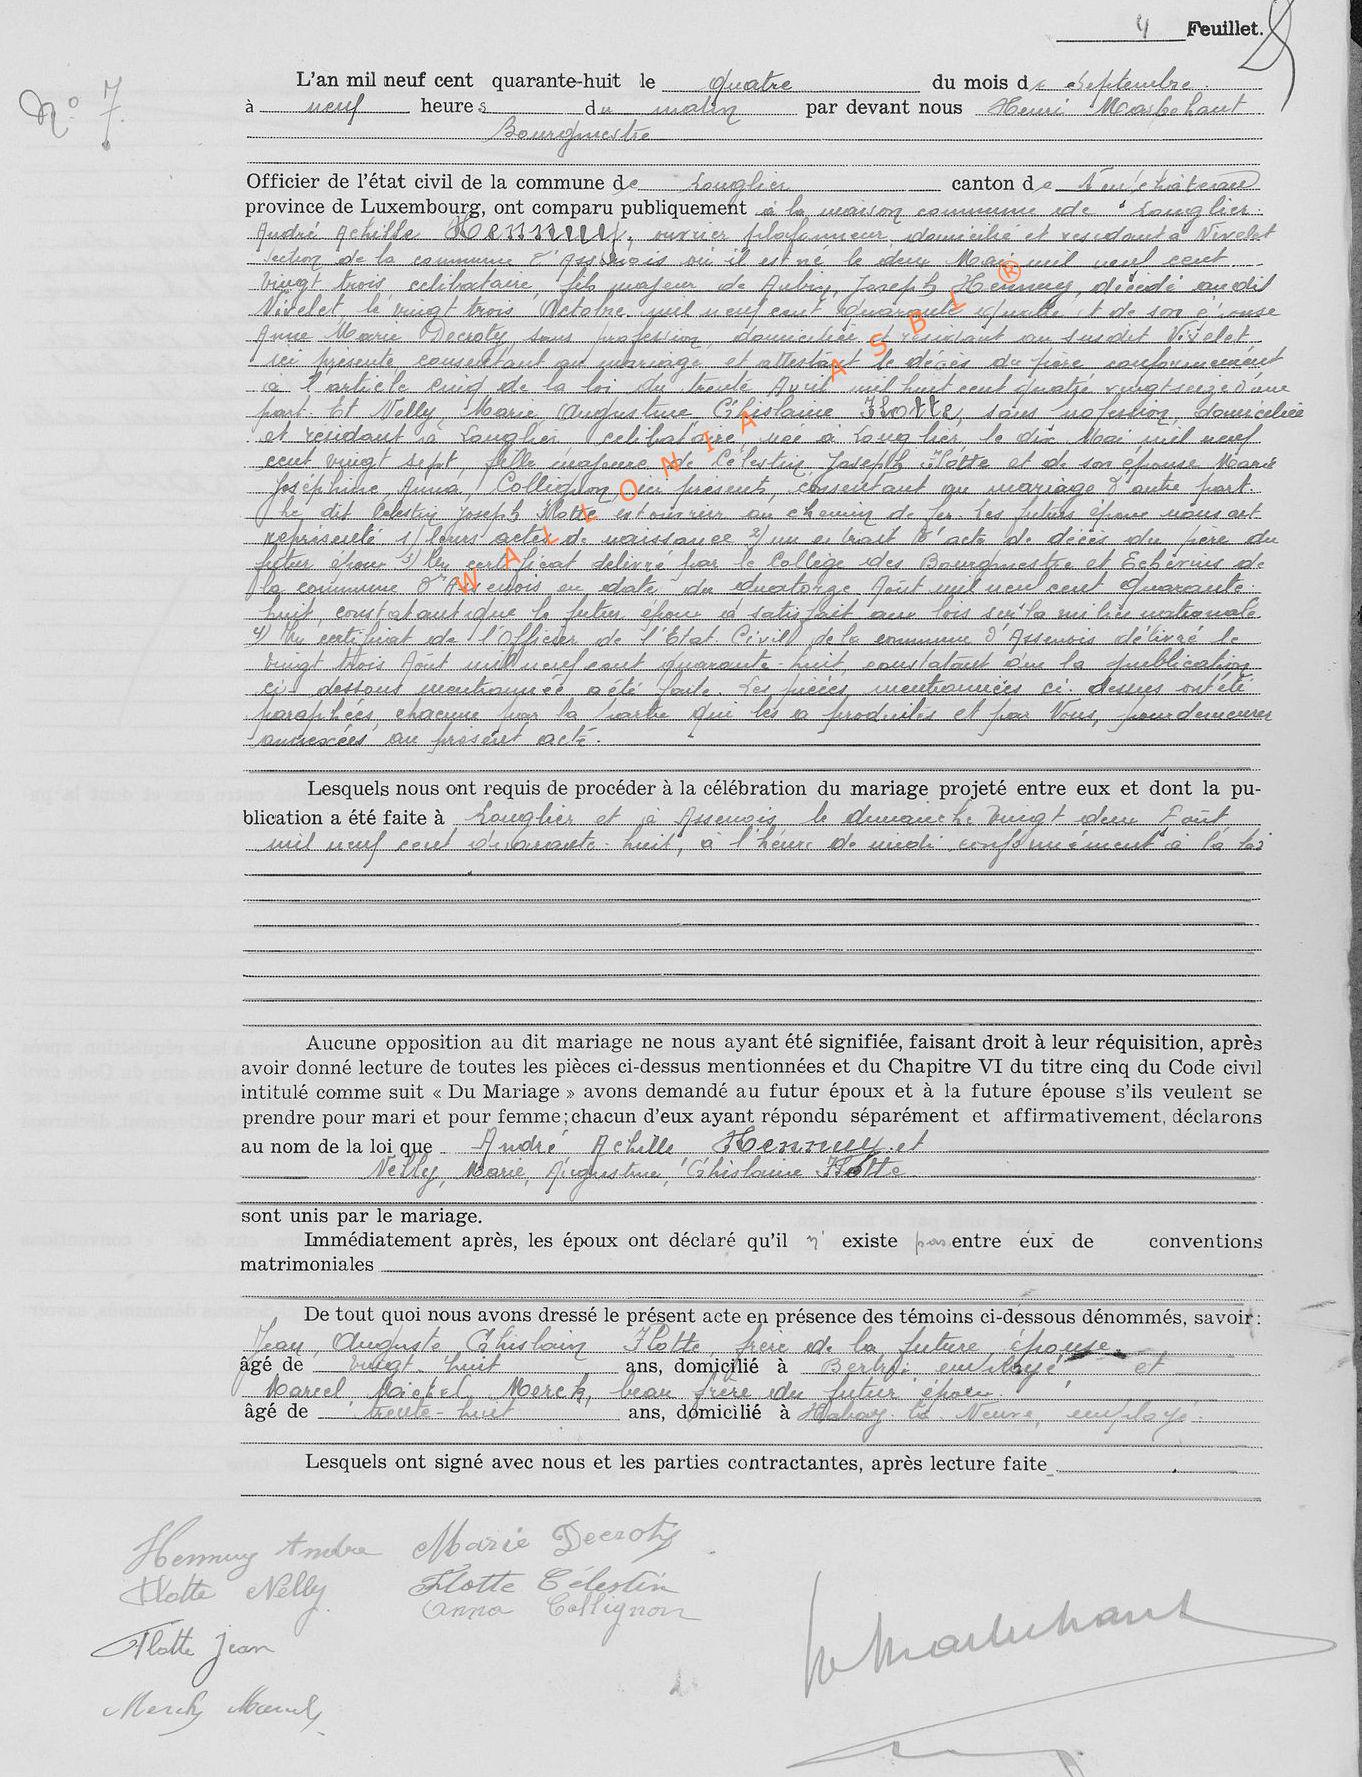 4 Feuillet.
N° 7
L'an mil neuf cent quarante-huit le quatre du mois de Septembre
à neuf heures du matin par devant nous Henri Marbehant
Bourgmestre
Officier de l'état civil de la commune de Longlier canton de Neufchâteau
province de Luxembourg, ont comparu publiquement à la maison commune de Longlier
André Achille Hennuy, ouvrier plafonneur, domicilié et résidant à Nivelet
section de la commune d'Assenois où il est né le deux Mai mil neuf cent
vingt trois, célibataire, fils majeur de Aubin, Joseph Hennuy, décédé au dit
Nivelet, le vingt trois Octobre mil neuf cent quarante quatre et de son épouse
Anne Marie Decroty, sans profession, domiciliée et résidant au susdit Nivelet
ici présente consentant au mariage et attestant le décès du père conformément
à l'article cinq de la loi du trente Avril mil huit cent quatre vingt seize d'une
part. Et Nelly, Marie, Augustine, Ghislaine Flotte, sans profession, domiciliée
et résidant à Longlier célibataire, née à Longlier le dix Mai mil neuf
cent vingt sept, fille majeure de Célestin, Joseph Flotte et de son épouse Marie
Joséphine, Anna, Collignon, ici présents, consentant au mariage d'autre part.
Le dit Célestin Joseph Flotte est ouvrier au chemin de fer. Les futurs époux nous ont
représenté 1) leurs actes de naissance 2) un extrait d'acte de décès du père du
futur époux 3) Un certificat délivré par le Collège des Bourgmestre et Echevins de
la commune d'Assenois en date du quatorze Août mil neuf cent quarante
huit, constatant que le futur époux a satisfait aux lois sur la milice nationale
4) Un certificat de l'Officier de l'Etat Civil de la commune d'Assenois délivré le
vingt trois Août mil neuf cent quarante-huit, constatant que la publication
ci-dessous mentionnée a été faite. Les pièces mentionnées ci-dessus ont été
paraphées, chacune par la partie qui les a produites et par Nous, pour demeurer
annexées au présent acte.
Lesquels nous ont requis de procéder à la célébration du mariage projeté entre eux et dont la pu-
blication a été faite à Longlier et à Assenois le dimanche vingt deux Août
mil neuf cent quarante-huit, à l'heure de midi conformément à la loi
Aucune opposition au dit mariage ne nous ayant été signifiée, faisant droit à leur réquisition, après
avoir donné lecture de toutes les pièces ci-dessus mentionnées et du Chapitre VI du titre cinq du Code civil
intitulé comme suit « Du Mariage » avons demandé au futur époux et à la future épouse s'ils veulent se
prendre pour mari et pour femme ; chacun d'eux ayant répondu séparément et affirmativement, déclarons
au nom de la loi que André Achille Hennuy et
Nelly, Marie, Augustine, Ghislaine Flotte
sont unis par le mariage.
Immédiatement après, les époux ont déclaré qu'il n'existe pas entre eux de conventions
matrimoniales
De tout quoi nous avons dressé le présent acte en présence des témoins ci-dessous dénommés, savoir :
Jean Auguste Ghislain Flotte, frère de la future épouse
âgé de vingt huit ans, domicilié à Bertrix employé et
Marcel Michel Merch, beau frère du futur époux
âgé de trente-huit ans, domicilié à Habay-la-Neuve, employé.
Lesquels ont signé avec nous et les parties contractantes, après lecture faite
Hennuy André Marie Decroty
Flotte Nelly Flotte Célestin
Anna Collignon
Flotte Jean
Merch Marcel
H Marbehant
WALLONIA ASBL ®